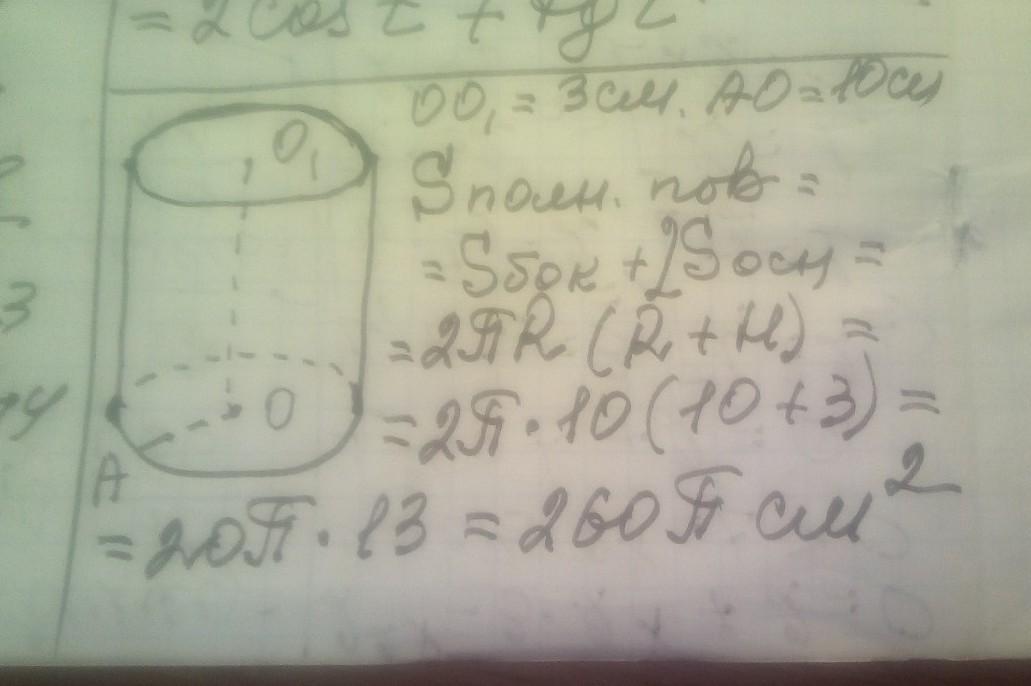 = 2 cos t + tg t
OO₁ = 3 см. AO = 10 см
Sполн. пов =
= Sбок + 2Sосн =
= 2πR (R + H) =
= 2π · 10 (10 + 3) =
= 20π · 13 = 260π см²
O₁
O
A
3